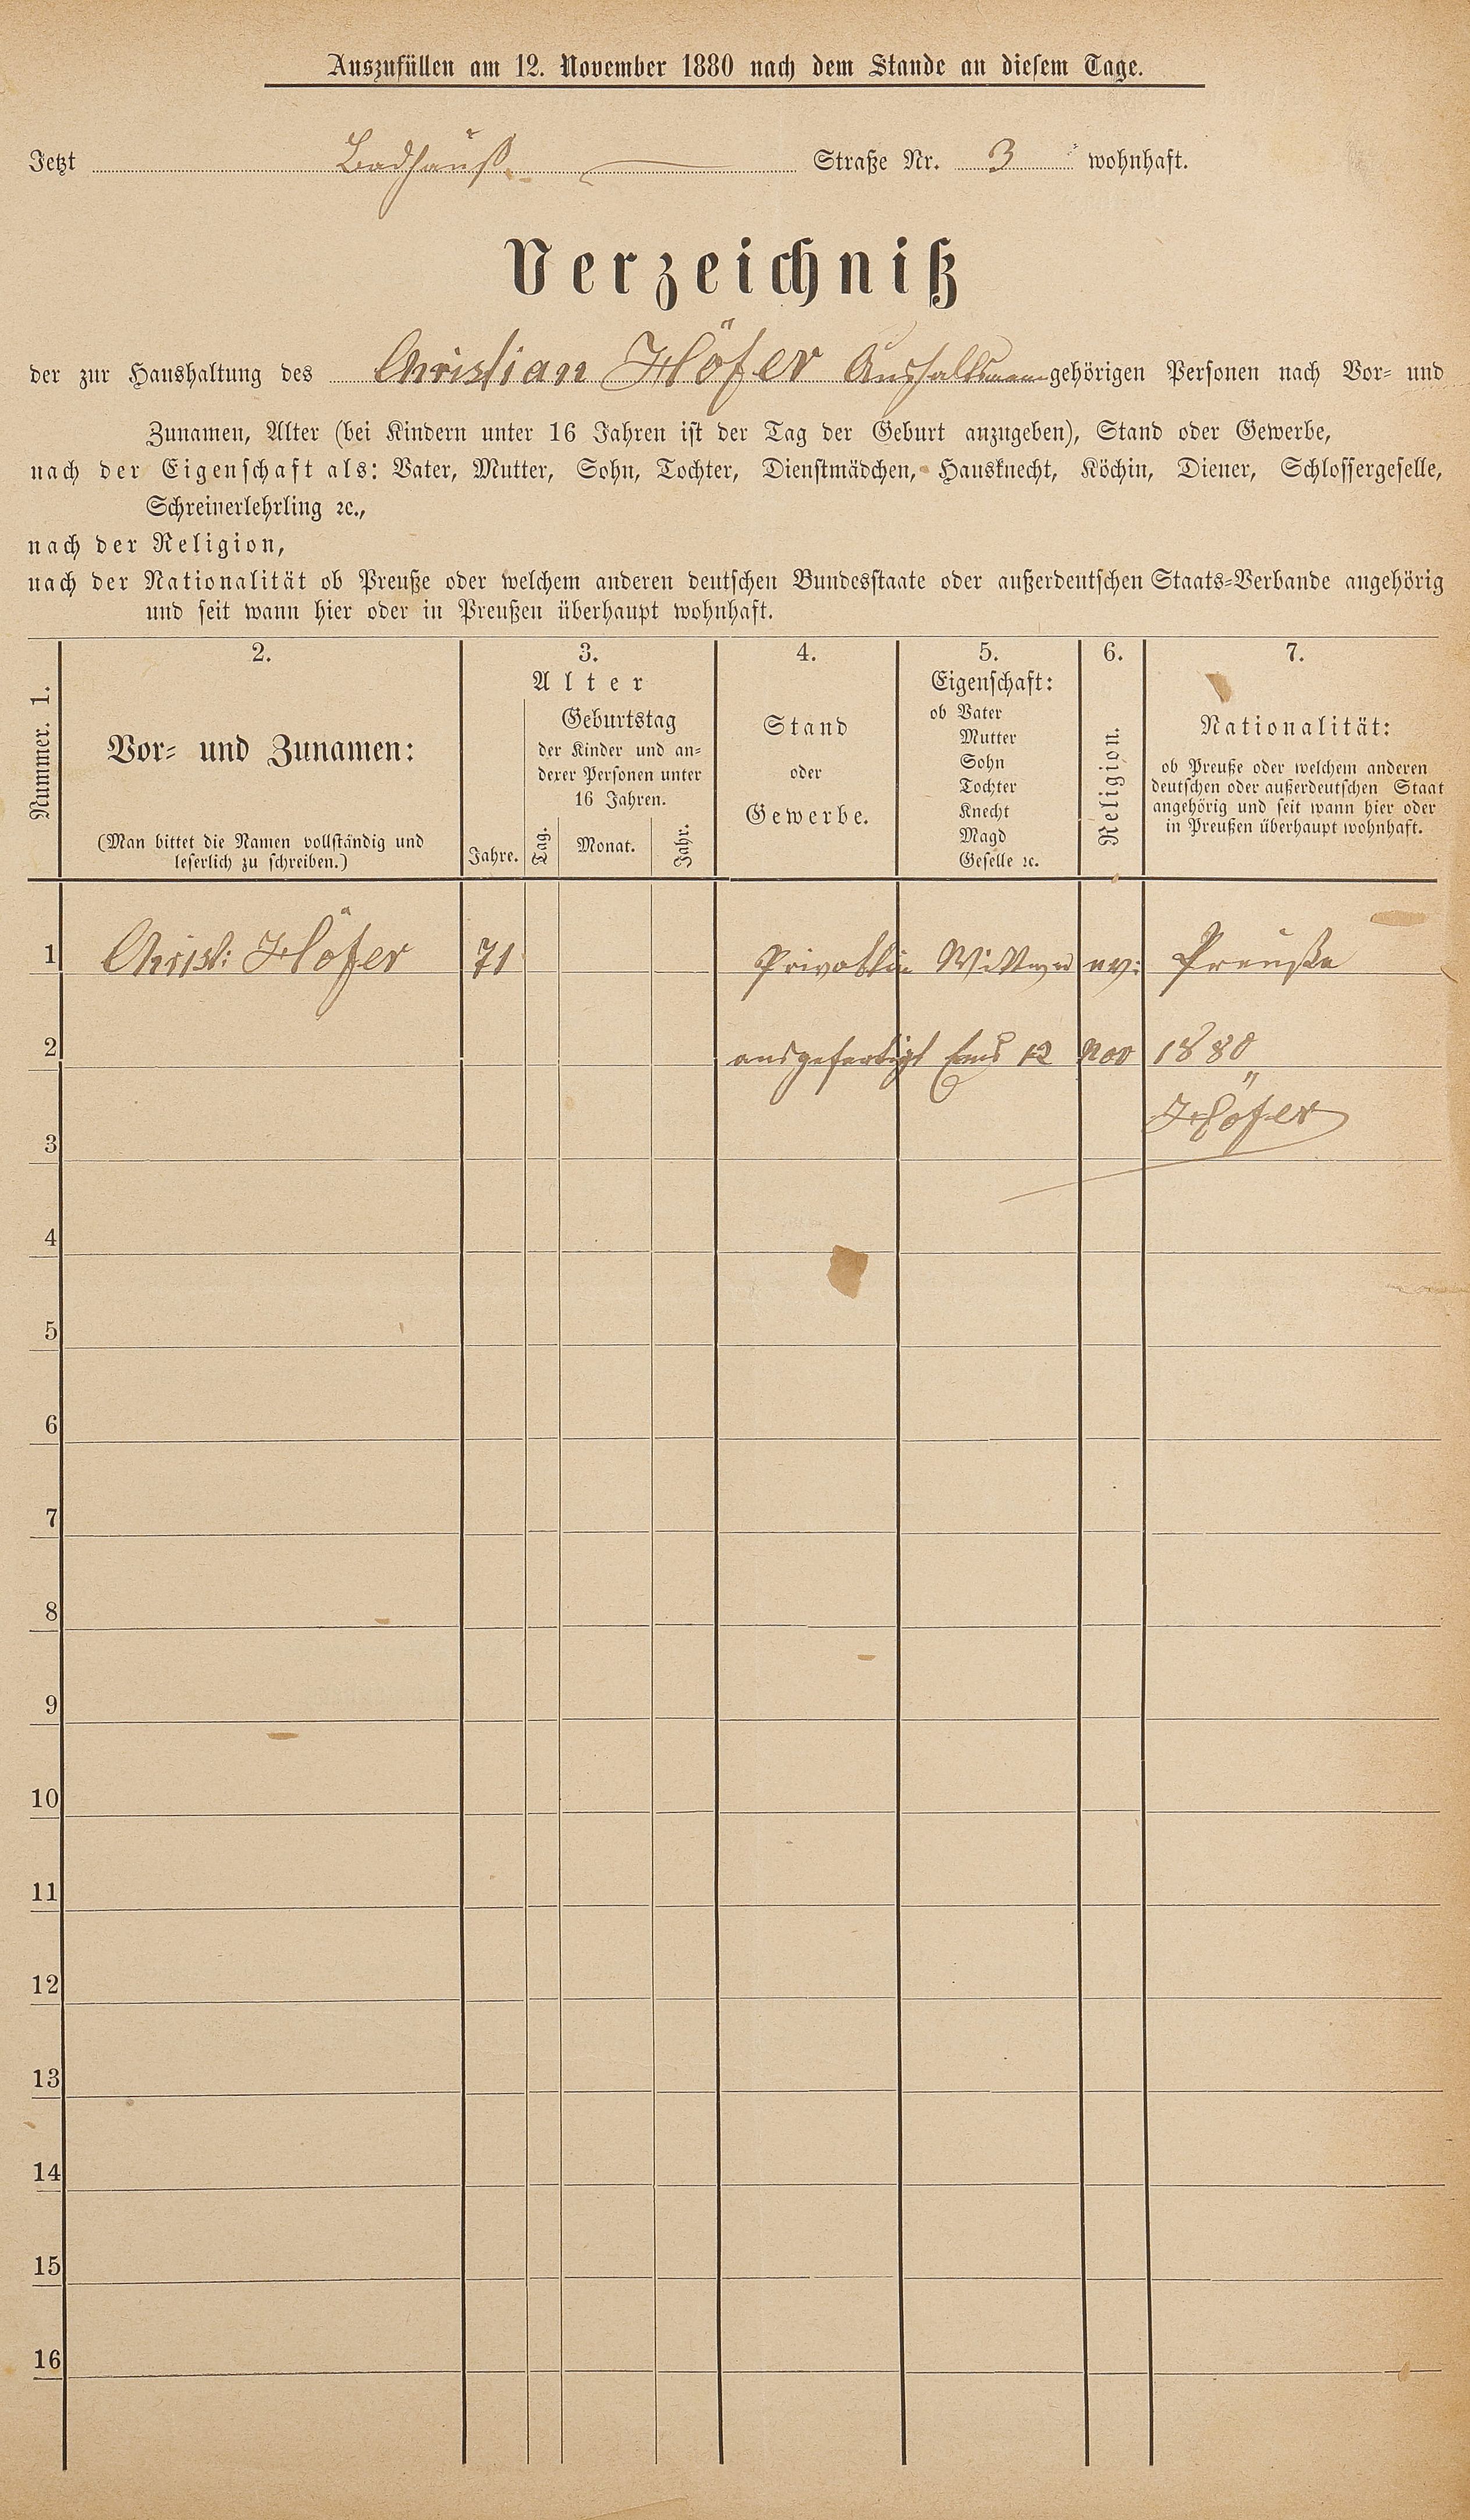 Auszufüllen am 12. November 1880 nach dem Stande an diesem Tage.
Jetzt Badhauß Straße Nr. 3 wohnhaft.
Verzeichniß
der zur Haushaltung des Christian Höfer gehörigen Personen nach Vor- und
Zunamen, Alter (bei Kindern unter 16 Jahren ist der Tag der Geburt anzugeben), Stand oder Gewerbe,
nach der Eigenschaft als: Vater, Mutter, Sohn, Tochter, Dienstmädchen, Hausknecht, Köchin, Diener, Schlossergeselle,
Schreinerlehrling ꝛc.,
nach der Religion,
nach der Nationalität ob Preuße oder welchem anderen deutschen Bundesstaate oder außerdeutschen Staats-Verbande angehörig
und seit wann hier oder in Preußen überhaupt wohnhaft.
Nummer. 1.
2.
Vor- und Zunamen:
(Man bittet die Namen vollständig und
leserlich zu schreiben.)
3.
Alter
Jahre.
Geburtstag
der Kinder und an-
derer Personen unter
16 Jahren.
Tag. Monat. Jahr.
4.
Stand
oder
Gewerbe.
5.
Eigenschaft:
ob Vater
Mutter
Sohn
Tochter
Knecht
Magd
Geselle ꝛc.
6.
Religion.
7.
Nationalität:
ob Preuße oder welchem anderen
deutschen oder außerdeutschen Staat
angehörig und seit wann hier oder
in Preußen überhaupt wohnhaft.
1 Christ: Höfer 71 Wittwer ev: Preuße
2 ausgefertigt Ems 12 Nov 1880
Höfer
3
4
5
6
7
8
9
10
11
12
13
14
15
16